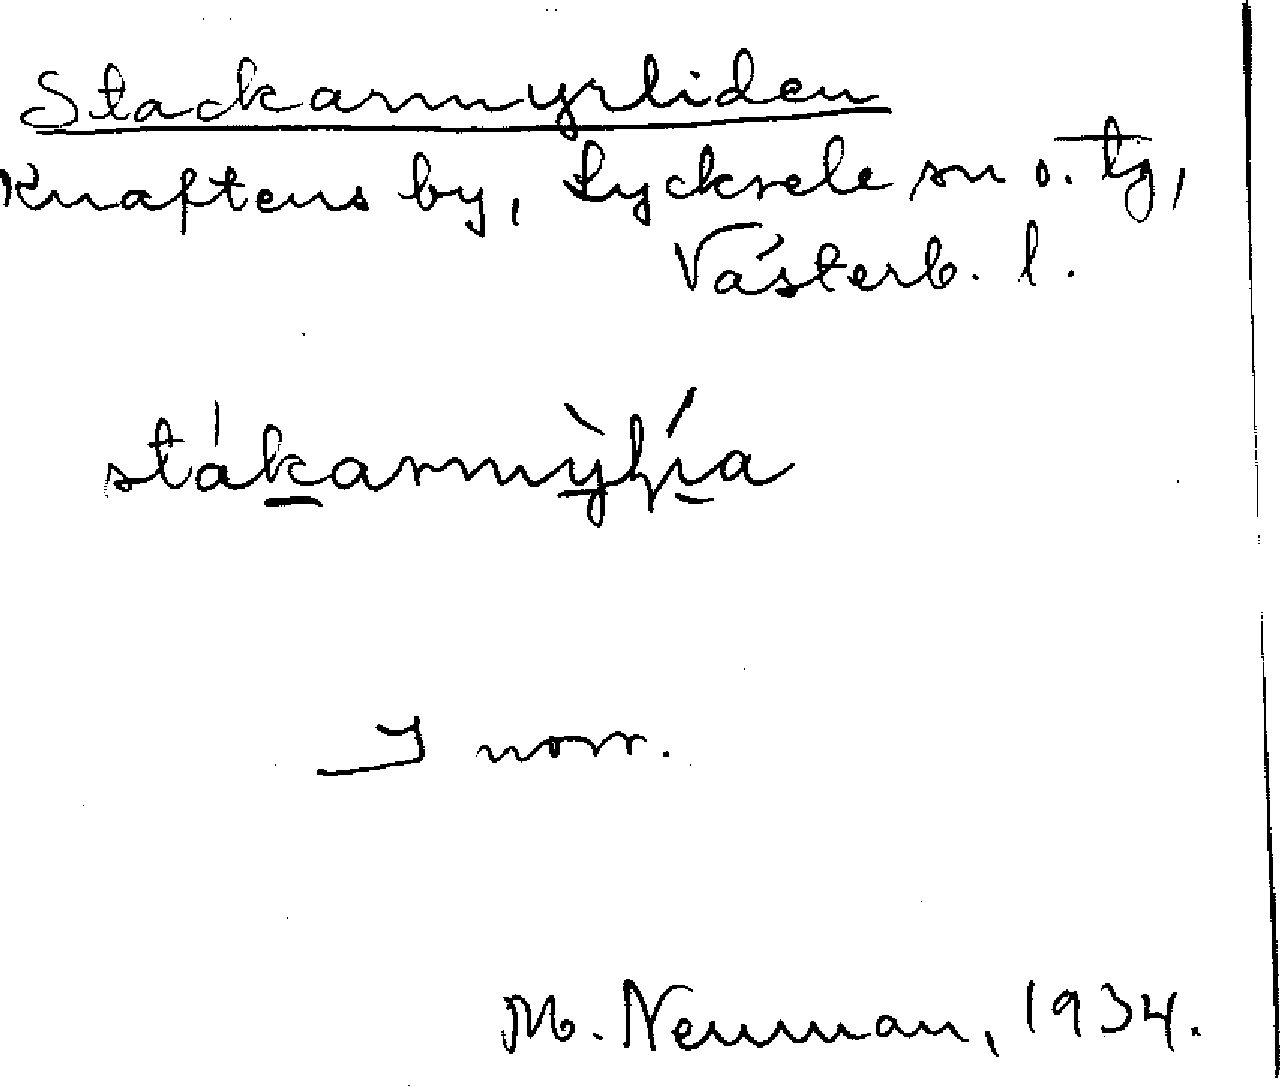 Stackarmyrliden
Knaftens by, Lycksele sn o. tg,
Västerb. l.
stákarmỳlía
I norr.
M. Neuman, 1934.